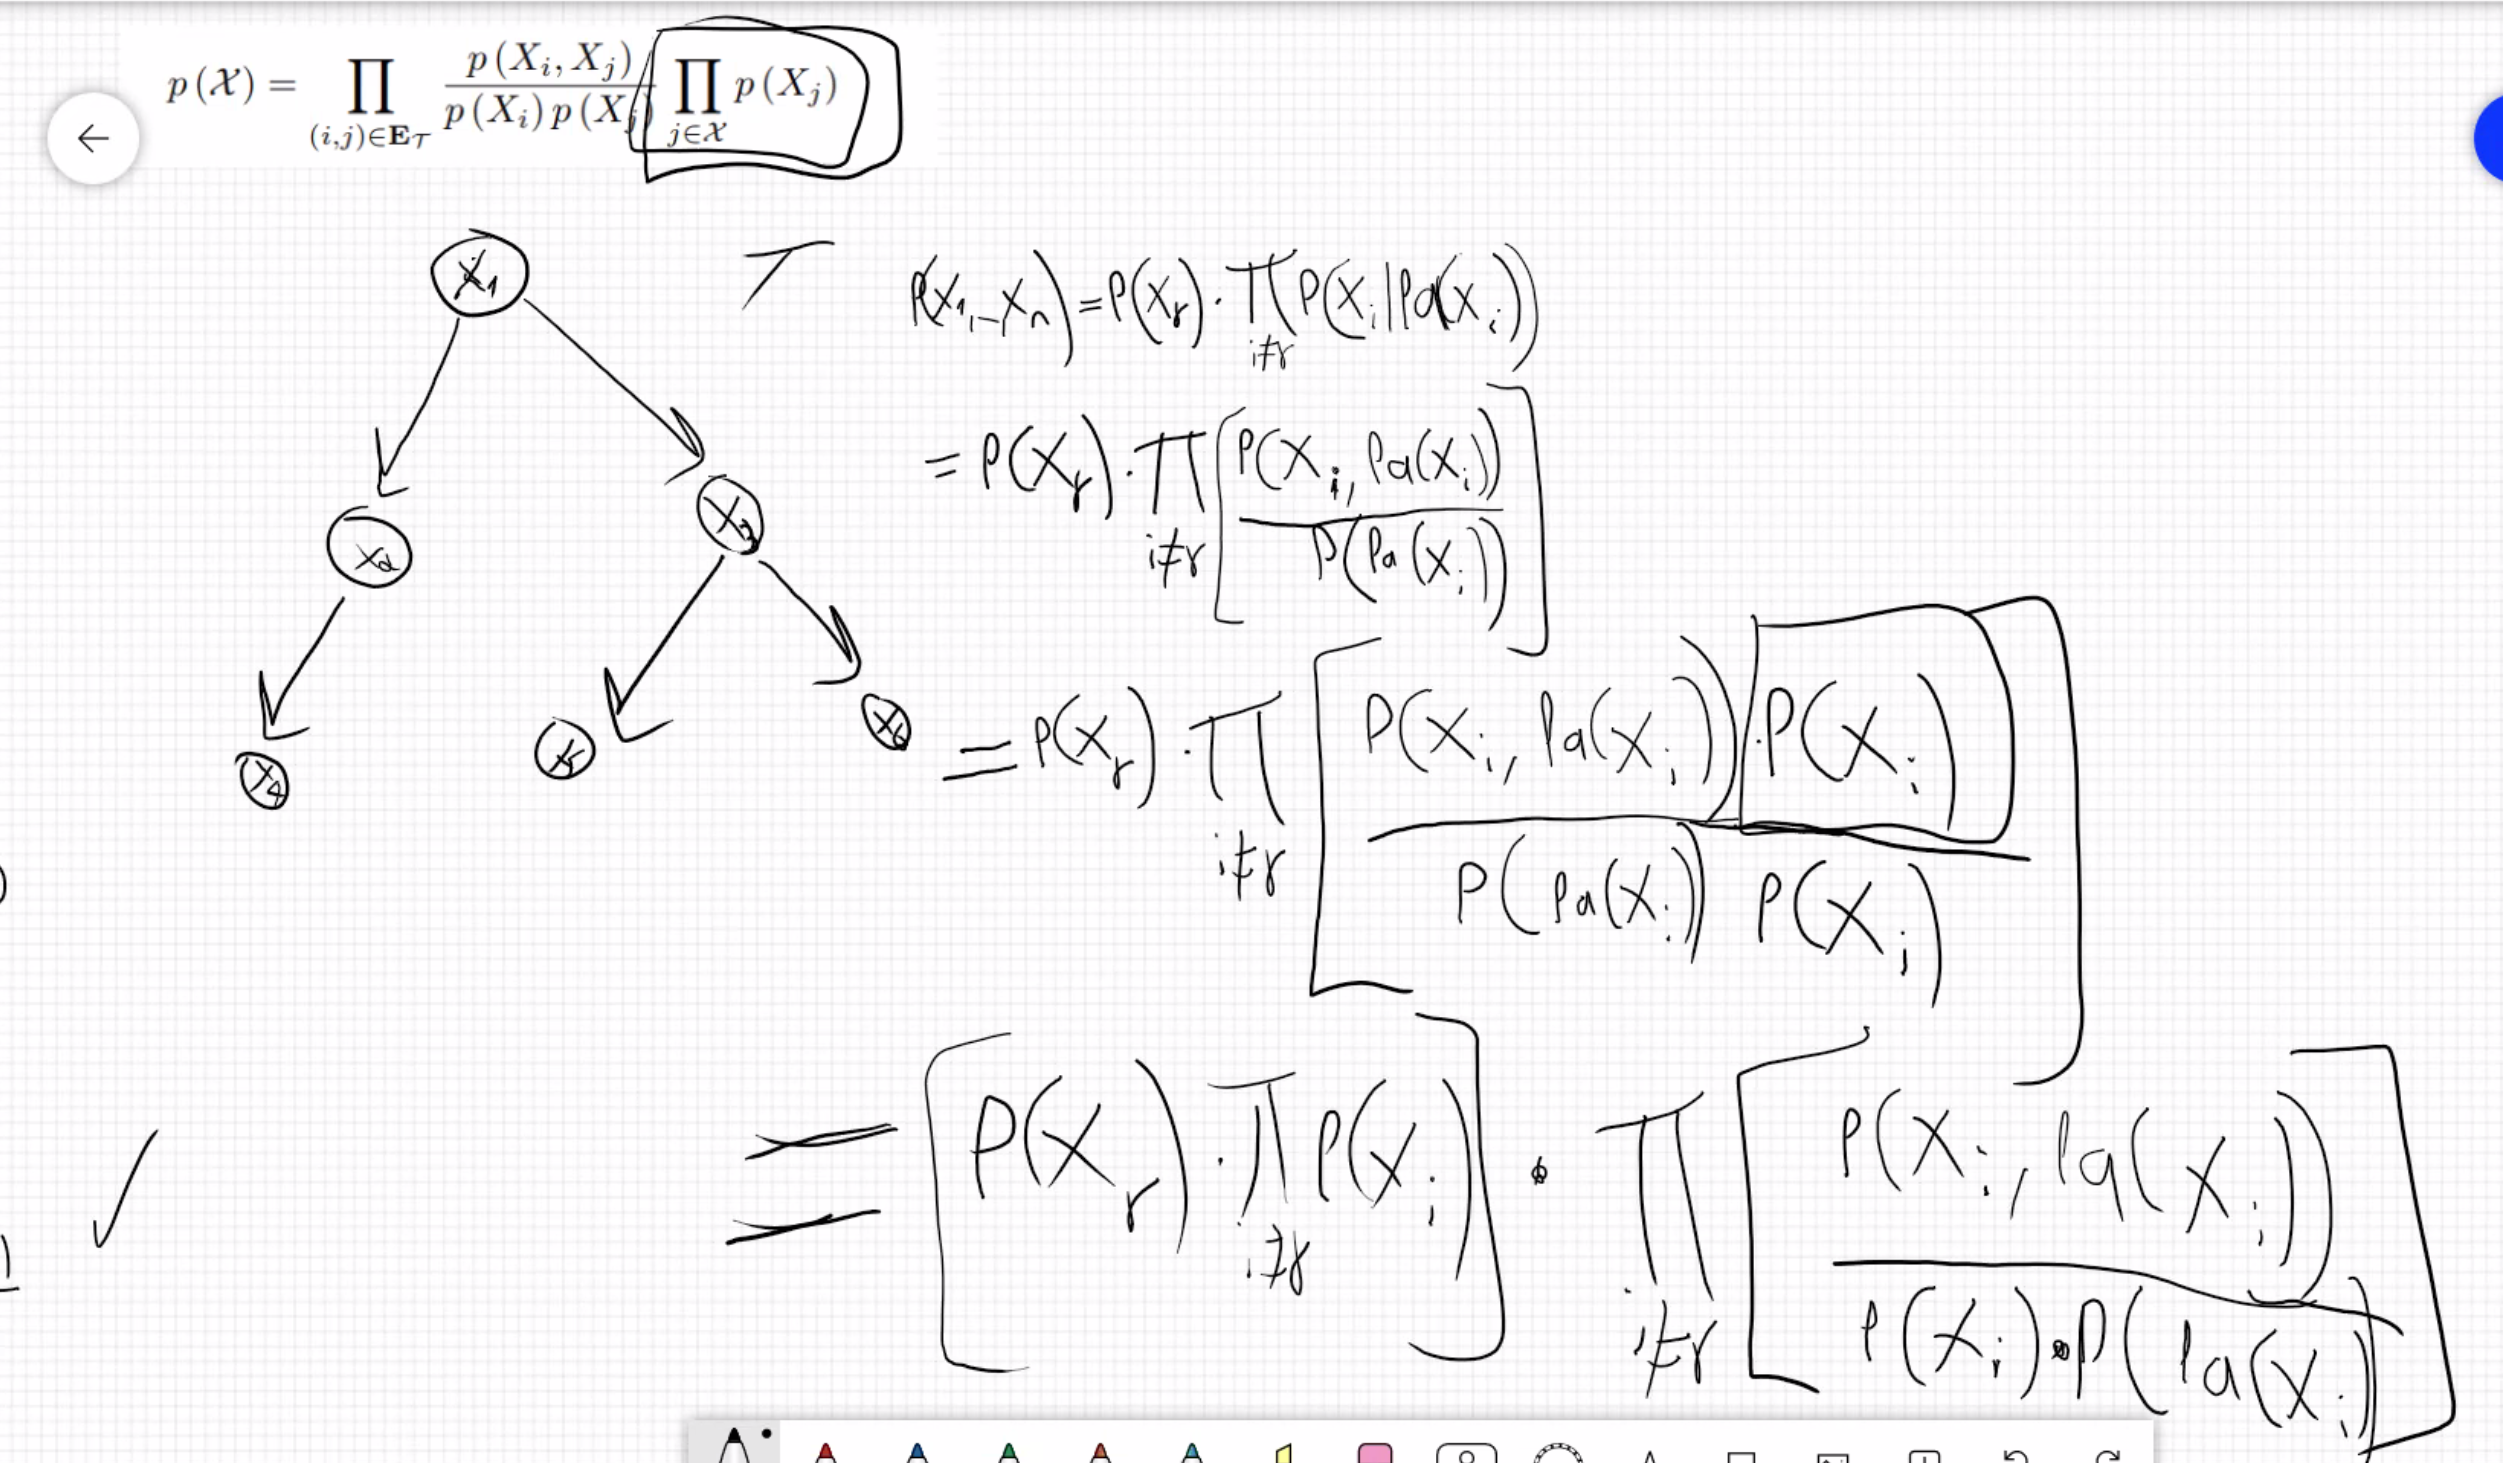 p(𝒳) = ∏_{(i,j)∈E_𝒯} p(X_i, X_j) / p(X_i) p(X_j) ∏_{j∈𝒳} p(X_j)
X_1
T
P(X_1, – X_n) = P(X_r) · ∏_{i≠r} P(X_i | Pa(X_i))
= P(X_r) · ∏_{i≠r} [ P(X_i, Pa(X_i)) / P(Pa(X_i)) ]
X_2
X_3
X_4
X_5
X_6
= P(X_r) · ∏_{i≠r} [ P(X_i, Pa(X_i)) · P(X_i) / P(Pa(X_i)) P(X_i) ]
= [ P(X_r) · ∏_{i≠r} P(X_i) ] · ∏_{i≠r} [ P(X_i, Pa(X_i)) / P(X_i) · P(Pa(X_i)) ]